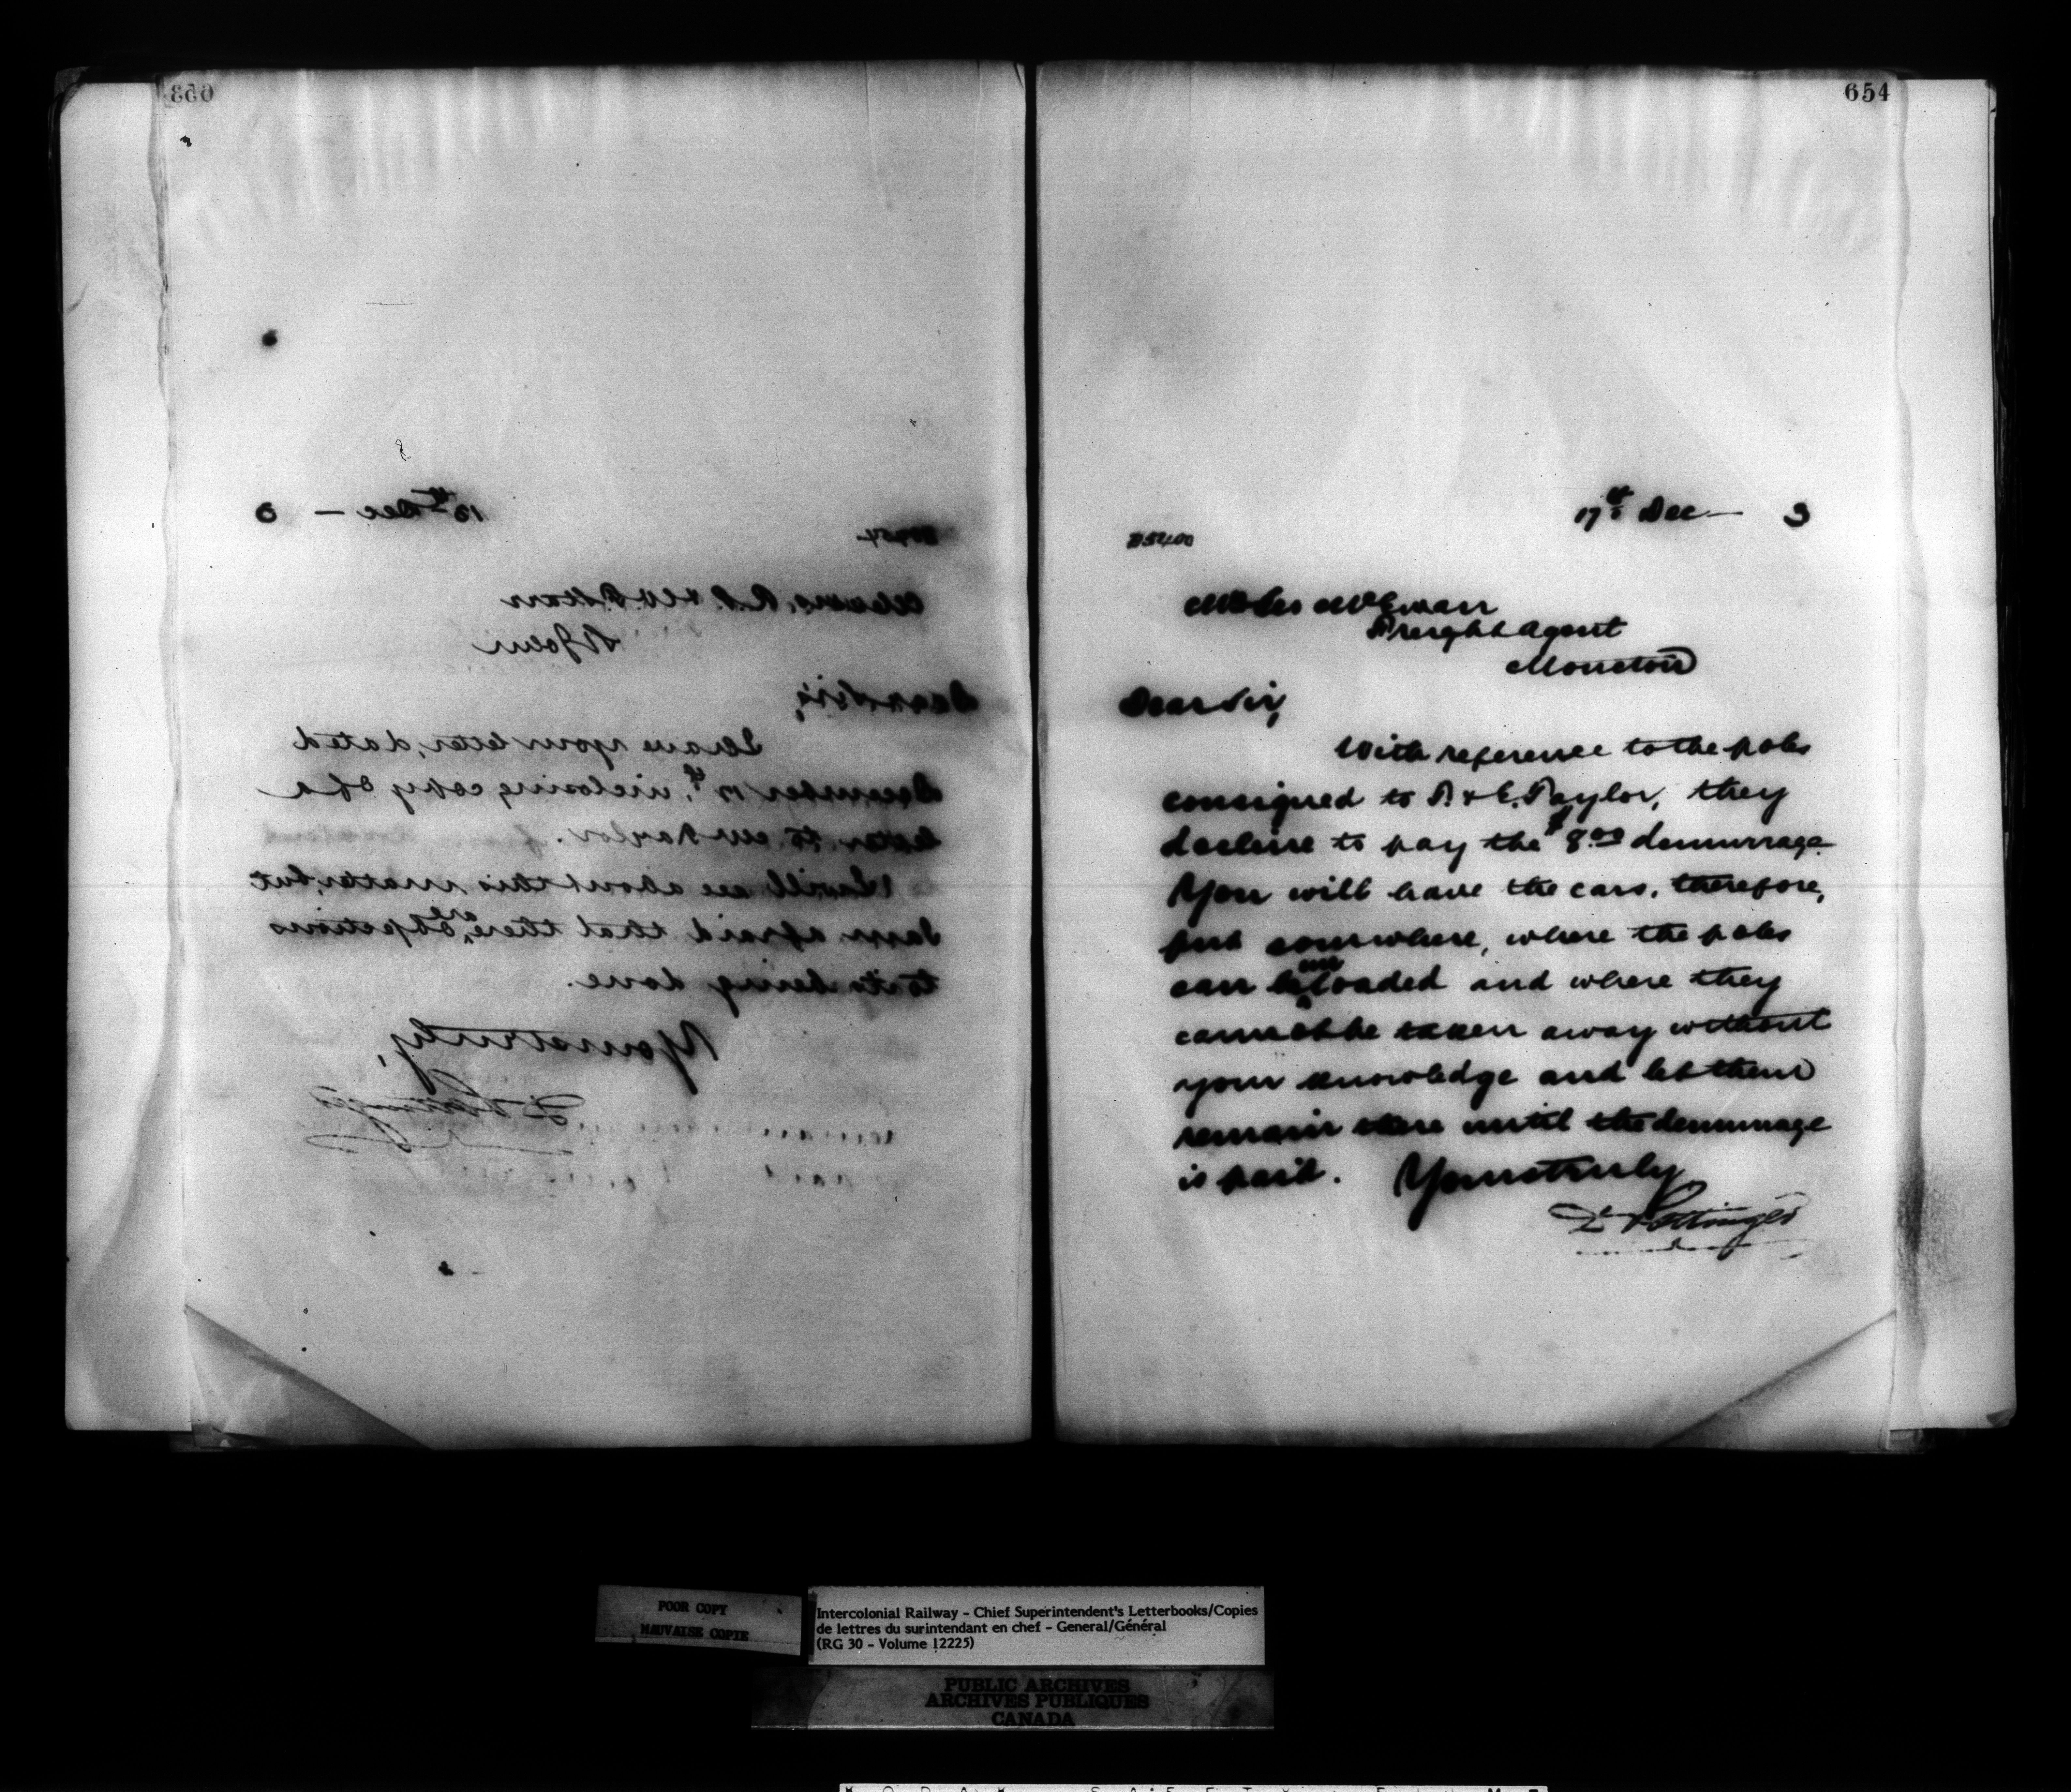 653
18th Dec — 3
Messrs. R. P. & W. F. Starr
St John
Dear Sirs,
I have your letter, dated
December 17th, inclosing copy of a
letter to Mr Naylor.
I will see about this matter, but
I am afraid that there are objections
to its being done.
Yours truly,
D Pottinger
654
17th Dec — 3
McEwan
Freight Agent
Moncton
Dear Sir,
With reference to the poles
consigned to P. & E. Taylor, they
decline to pay the $8.00 demurrage.
You will have the cars, therefore,
put somewhere, where the poles
can be unloaded and where they
cannot be taken away without
your knowledge and let them
remain there until the demurrage
is paid. Yours truly
D Pottinger
POOR COPY
MAUVAISE COPIE
Intercolonial Railway - Chief Superintendent's Letterbooks/Copies
de lettres du surintendant en chef - General/Général
(RG 30 - Volume 12225)
PUBLIC ARCHIVES
ARCHIVES PUBLIQUES
CANADA